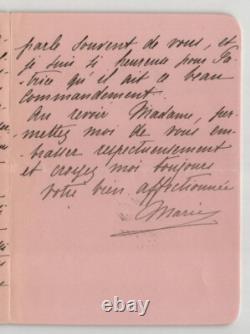 parle souvent de vous, et
je suis si heureuse pour Pa-
trice qu'il ait ce beau
commandement.
Au revoir Madame, per-
mettez moi de vous em-
brasser respectueusement
et croyez moi toujours
votre bien affectionnée
Marie
ebay